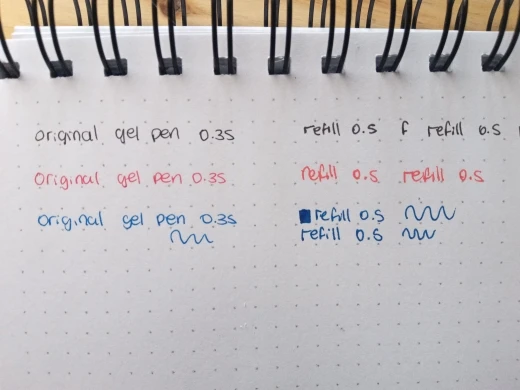 original gel pen 0.35 refill 0.5 f refill 0.5
original gel pen 0.35 refill 0.5 refill 0.5
original gel pen 0.35 refill 0.5
refill 0.5